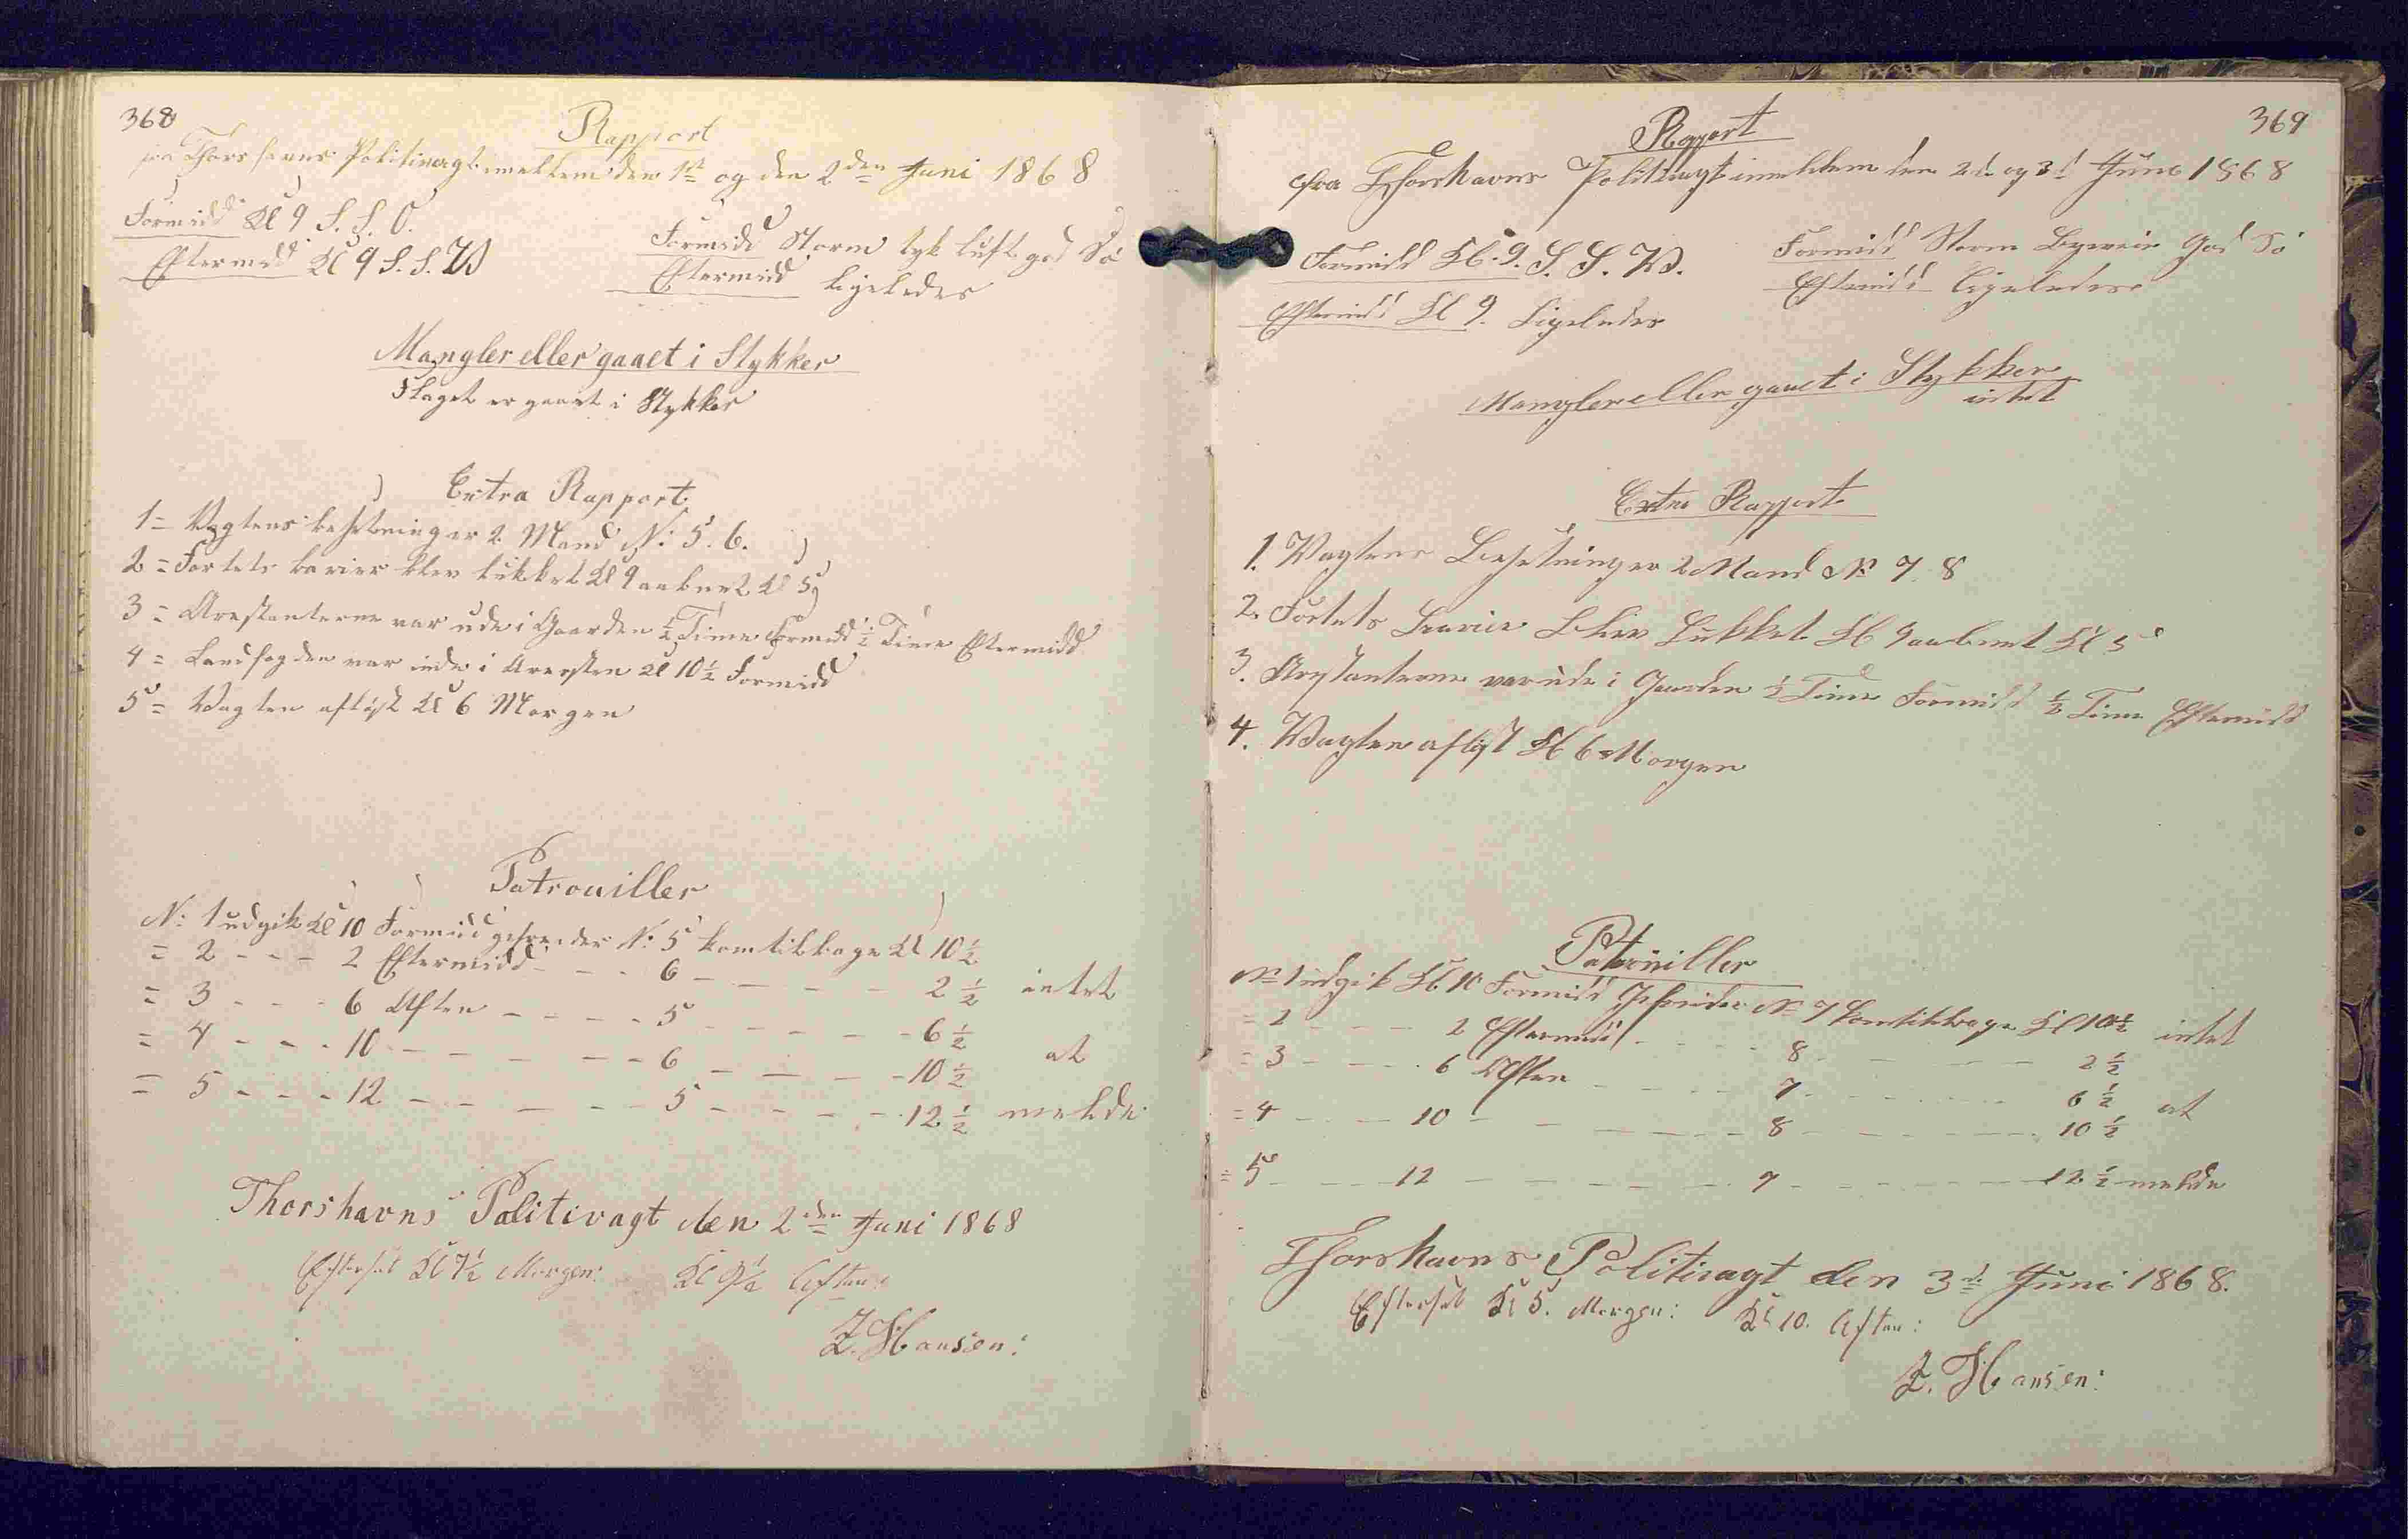 368
Rapport
fra Thorshavns Politivagt imellem den 1ste og den 2den Juni 1868
Formidd Kl 9 S. S. O.
Eftermidd Kl 9 S. S. W
Formidd Storm tyk luft god Sö
Eftermidd ligeledes
Mangler eller gaaet i Stykker
Flaget er gaaet i Stykker
Extra Rapport
1 = Vagtens besetning er 2 Mand N: 5. 6.
2 = Fortets barier blev lukket Kl 9 aabnet Kl 5
3 = Arestanterne var ude i Gaarden ½ Time Formidd ½ Time Eftermidd
4 = Landfogden var inde i Aresten Kl 10½ Formidd
5 = Vagten aflöst Kl 6 Morgen
Patrouiller
N: 1 udgik Kl 10 Formidd gefreider N: 5 kom tilbage Kl 10½
= 2 - - - 2 Eftermidd - - - 6 - - - - - 2½ intet
= 3 - - - 6 Aften - - - - 5 - - - - - 6½
= 4 - - - 10 - - - - - - 6 - - - - - 10½ at
= 5 - - - 12 - - - - - 5 - - - - - 12½ melde
Thorshavns Politivagt den 2den Juni 1868
Efterset Kl 7½ Morgen: Kl 9½ Aften:
Z. Hansen:
369
Raport
fra Thorshavns Politivagt imellem den 2d og 3d Juni 1868
Formidd Kl. 9. S. S. W.
Eftermidd Kl 9. Ligeledes
Formidd Storm Byveir God Sö
Eftermidd Ligeledes
Mangler eller gaaet i Stykker
intet
Extra Rapport
1. Vagtens Besetning er 2 Mand No 7. 8
2. Fortets Barier Blev Lukket Kl 9 aabnet Kl 5
3. Arestanterne var ude i Gaarden ½ Time Formidd ½ Time Eftermidd
4. Vagten aflöst Kl 6 Morgen
Patruiller
No 1 udgik Kl 10 Formidd Gefreider No 7 kom tilbage Kl 10½ intet
= 2 - - - - 2 Eftermidd - - - - 8 - - - - 2½
= 3 - - - - 6 Aften - - - - 7 - - - - 6½ at
= 4 - - - - 10 - - - - - - 8 - - - - 10½
= 5 - - - - 12 - - - - - - 7 - - - - 12½ melde
Thorshavns Politivagt den 3d Juni 1868.
Efterset Kl 5. Morgen: Kl 10. Aften:
Z. Hansen: